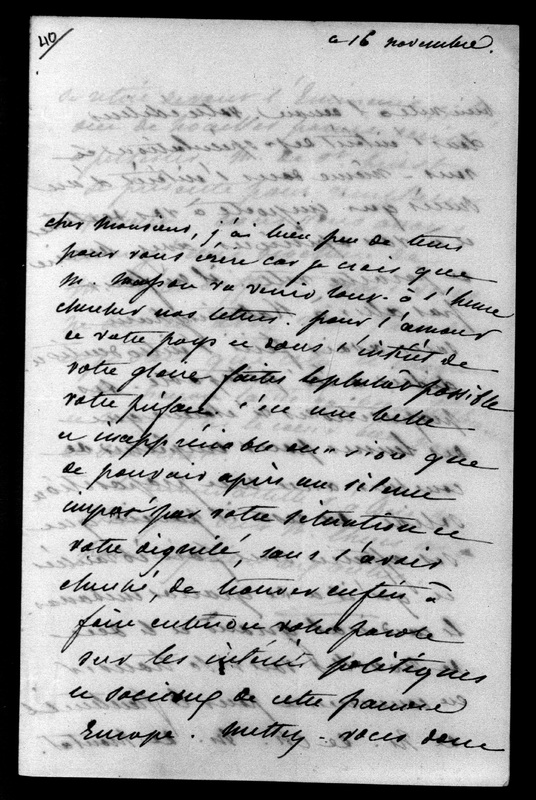 40
ce 16 novembre.
cher monsieur, j'ai bien peu de tems
pour vous écrire car je crois que
M. Masson va venir tout à l'heure
chercher nos lettres. pour l'amour
de votre pays et dans l'intérêt de
votre gloire faites le plutôt possible
votre préface. c'est une belle
et inappréciable occasion que
de pouvoir après un silence
imposé par votre situation et
votre dignité, sans l'avoir
cherché, de trouver enfin à
faire entendre votre parole
sur les intérêts politiques
et sociaux de cette pauvre
Europe. Mettez-vous donc